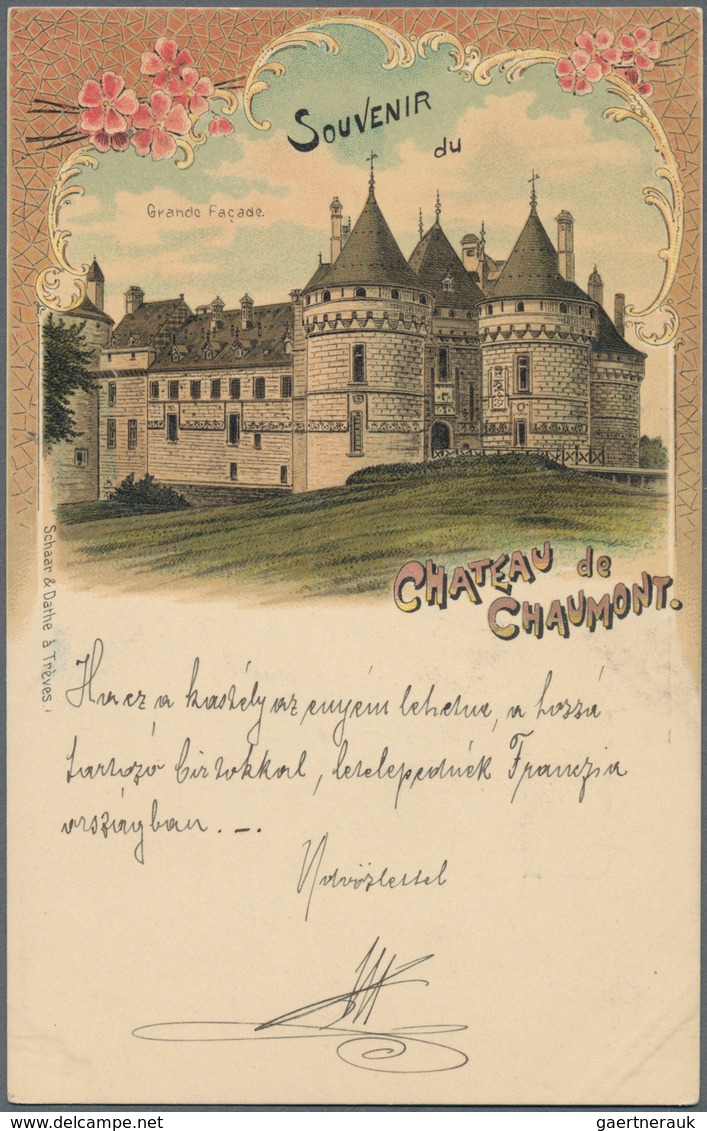 SOUVENIR
du
Grande Façade.
CHATEAU de
CHAUMONT.
Schaar & Dathe à Trèves.
Ha ez a kastély az enyém lehetne, a hozzá
tartozó birtokkal, letelepednék Franczia
országban. _._
Üdvözlettel
gaertnerauk